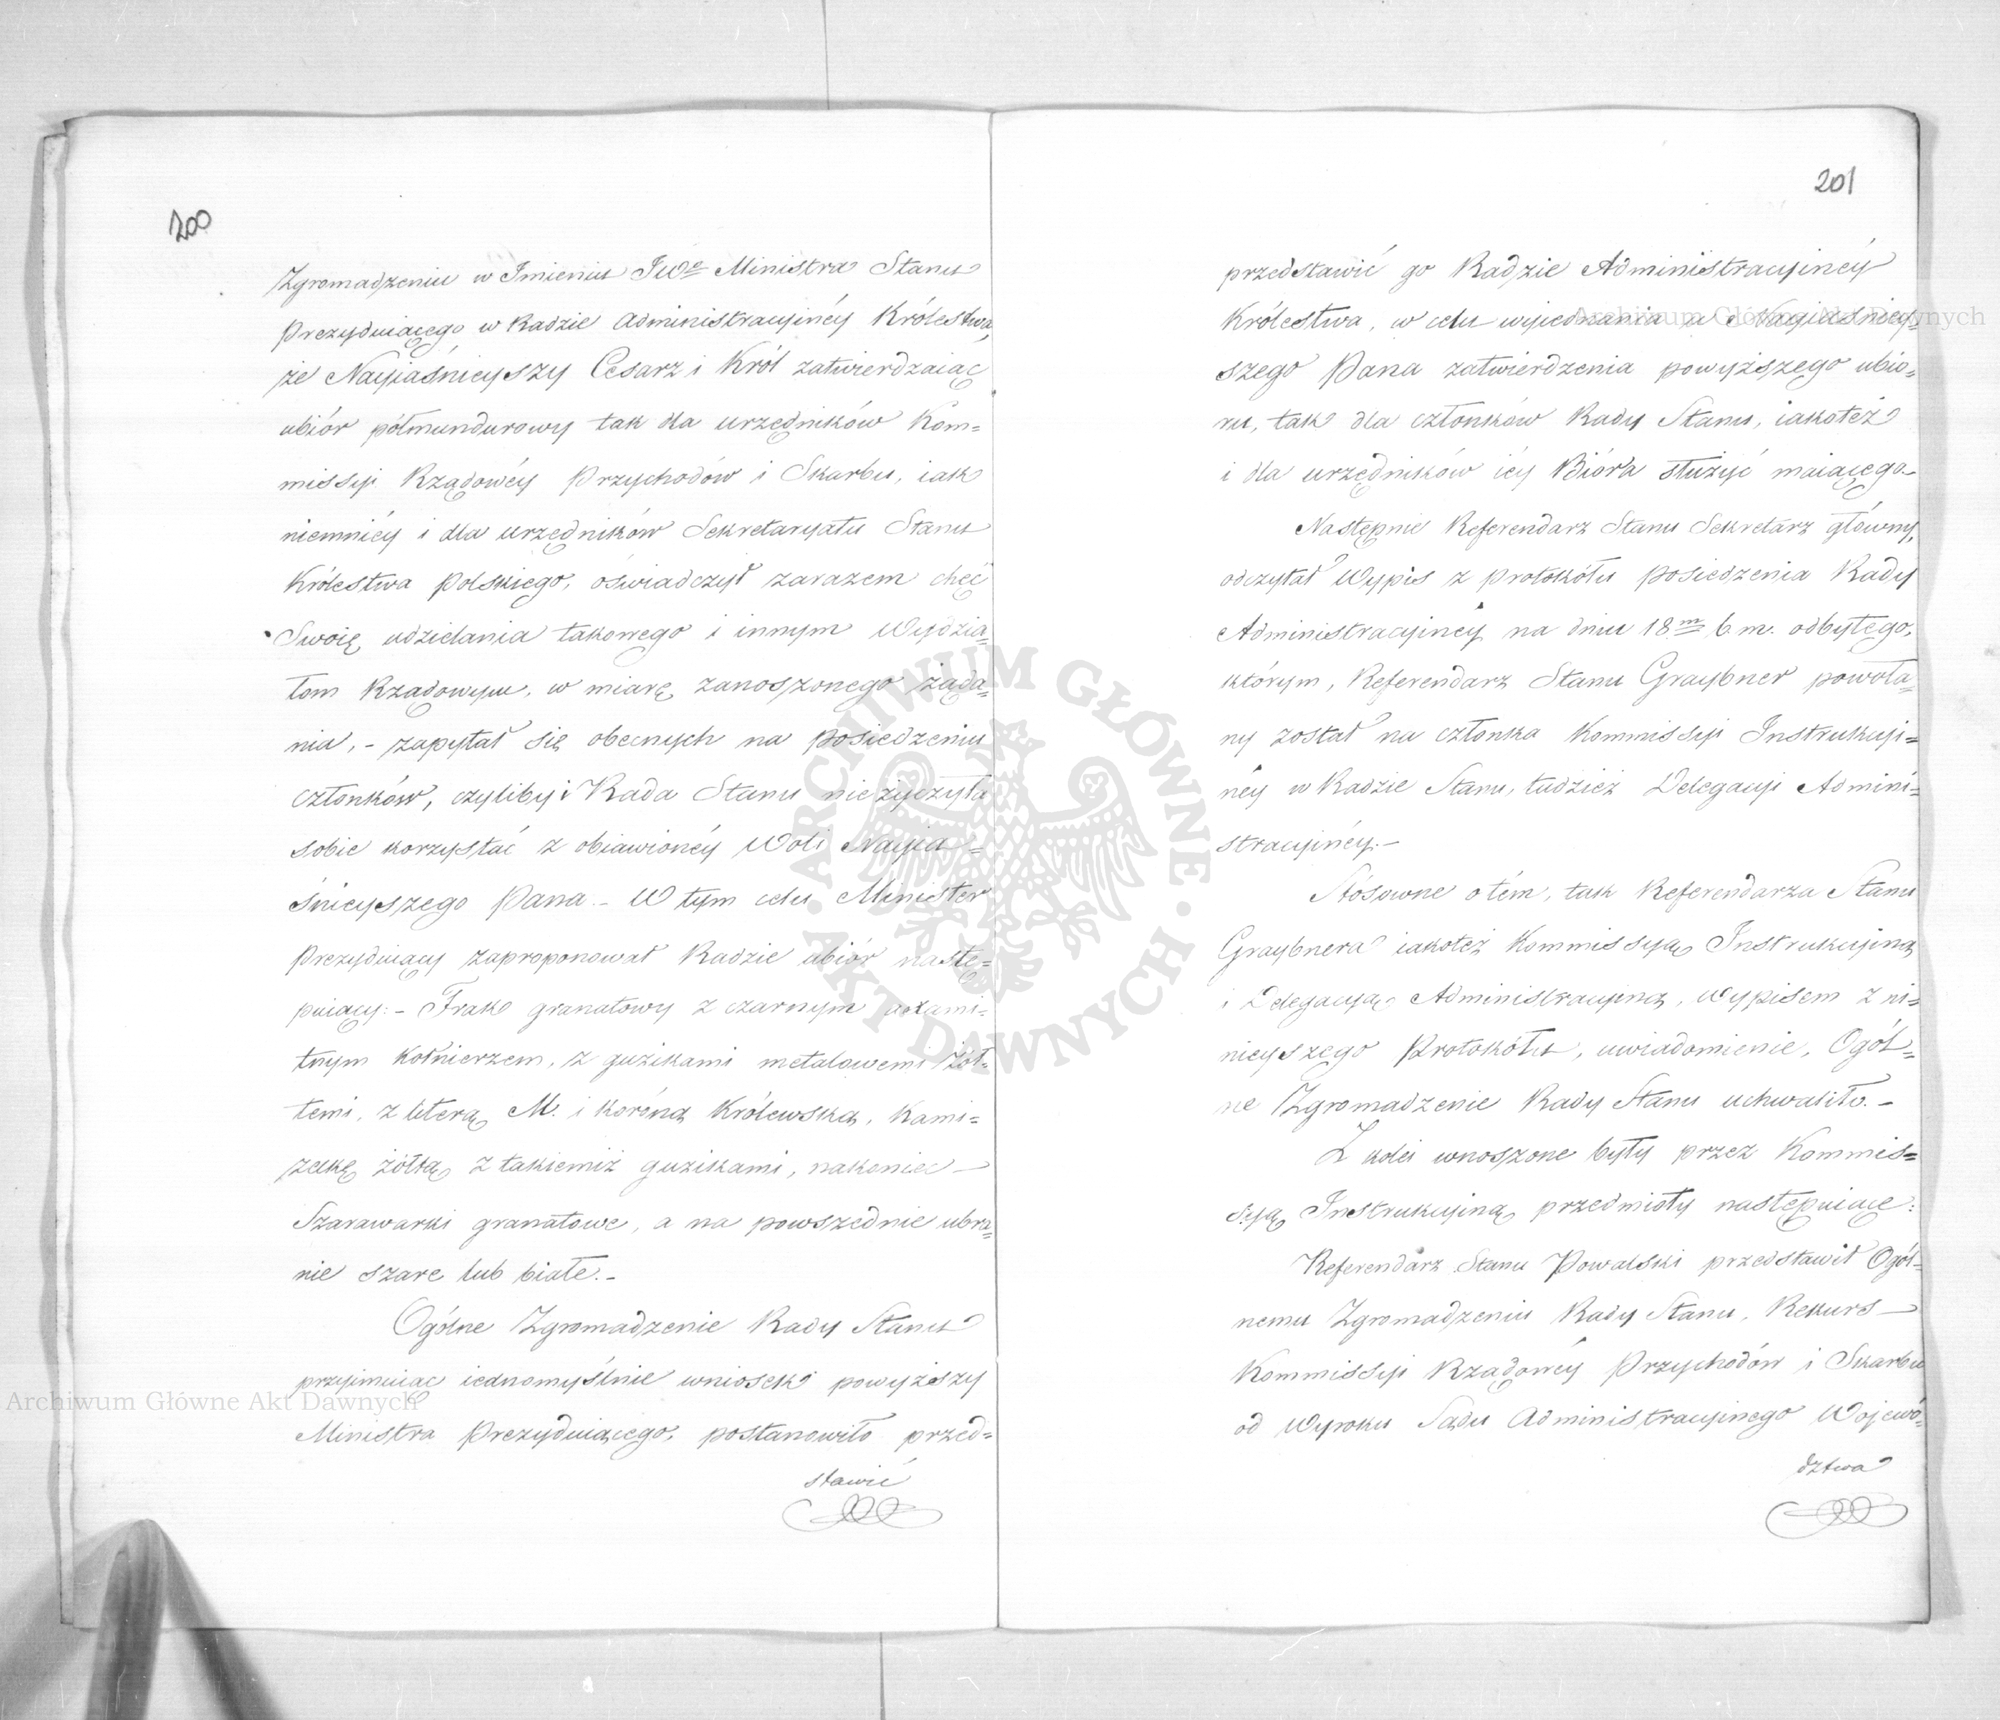 200
Zgromadzeniu w Imieniu JWo Ministra Stanu
Prezyduiącego w Radzie Administracyinéy Królestwa,
że Nayiaśnieyszy Cesarz i Król zatwierdzaiąc
ubiór półmundurowy tak dla urzędników Kom=
missyi Rządowéy Przychodów i Skarbu, iak
niemniéy i dla urzędników Sekretaryatu Stanu
Królestwa Polskiego, oświadczył zarazem chęć
Swoię udzielania takowego i innym Wydzia=
łom Rządowym, w miarę zanoszonego żąda=
nia, - zapytał się obecnych na posiedzeniu
członków, czyliby i Rada Stanu nieżyczyła
sobie korzystać z obiawionéy Woli Nayia=
śnieyszego Pana. - W tym celu Minister
Prezyduiący zaproponował Radzie ubiór nastę=
puiący: - Frak granatowy z czarnym axami=
tnym kołnierzem, z guzikami metalowemi żół=
temi, z literą M. i koróną Królewską, Kami=
zelkę żółtą z takiemiż guzikami, nakoniec
Szarawarki granatowe, a na powszednie ubra=
nie szare lub białe. -
Ogólne Zgromadzenie Rady Stanu
przyimuiąc iednomyślnie wniosek powyższy
Ministra Prezyduiącego, postanowiło przed=
stawić
201
przedstawić go Radzie Administracyinéy
Królestwa, w celu wyiednania u Nayiaśniey=
szego Pana zatwierdzenia powyższego ubio=
ru, tak dla członków Rady Stanu, iakoteż
i dla urzędników iéy Bióra służyć maiącego
Następnie Referendarz Stanu Sekretarz główny,
odczytał Wypis z protokółu posiedzenia Rady
Administracyinéy na dniu 18m b. m. odbytego,
którym, Referendarz Stanu Graybner powoła=
ny został na członka Kommissyi Instrukcyi=
néy w Radzie Stanu, tudzież Delegacyi Admini=
stracyinéy. -
Stósowne o tém, tak Referendarza Stanu
Graybnera iakoteż Kommissyą Instrukcyiną
i Delegacyą Administracyiną, wypisem z ni=
nieyszego Protokółu, uwiadomienie, Ogól=
ne Zgromadzenie Rady Stanu uchwaliło. -
Z kolei wnoszone były przez Kommis=
syą Instrukcyiną przedmioty następuiące:
Referendarz Stanu Powalski przedstawił Ogól=
nemu Zgromadzeniu Rady Stanu, Rekurs
Kommissyi Rządowéy Przychodów i Skarbu
od Wyroku Sądu Administracyinego Wojewó=
dztwa
Archiwum Główne Akt Dawnych
Archiwum Główne Akt Dawnych
ARCHIWUM GŁÓWNE · AKT DAWNYCH ·